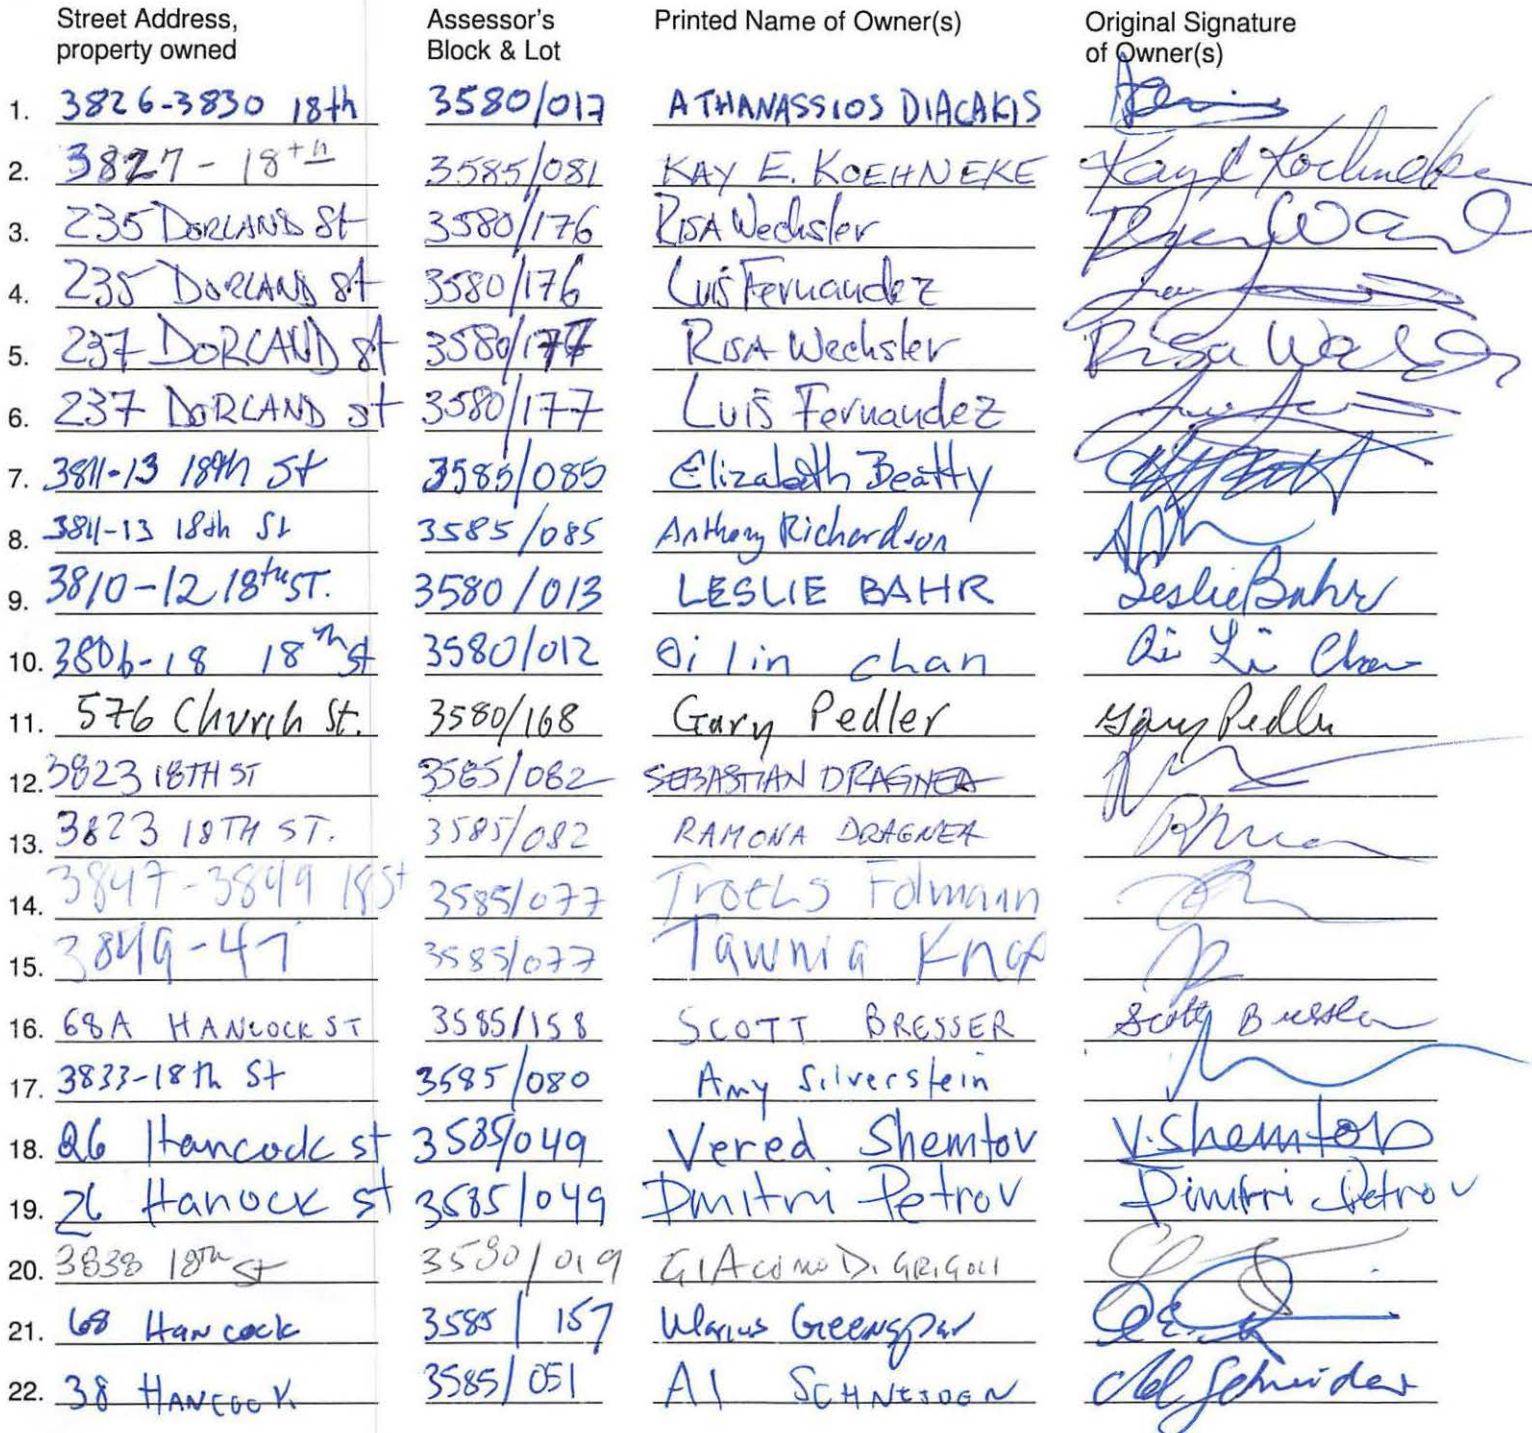 Street Address, property owned Assessor's Block & Lot Printed Name of Owner(s) Original Signature of Owner(s)
1. 3826-3830 18th 3580/017 ATHANASSIOS DIACAKIS
2. 3827 - 18th 3585/081 KAY E. KOEHNEKE Kay E Koehneke
3. 235 DORLAND St 3580/176 RISA Wechsler
4. 235 DORLAND St 3580/176 Luis Fernandez
5. 237 DORLAND st 3580/177 RISA Wechsler Risa
6. 237 DORLAND st 3580/177 Luis Fernandez
7. 3811-13 18th St 3585/085 Elizabeth Beatty
8. 3811-13 18th St 3585/085 Anthony Richardson
9. 3810-12 18th ST. 3580/013 LESLIE BAHR Leslie Bahr
10. 3806-18 18th st 3580/012 Oi lin chan Oi Li Chan
11. 576 Church St. 3580/168 Gary Pedler Gary Pedler
12. 3823 18TH ST 3585/082 SEBASTIAN DRAGNEA
13. 3823 18TH ST. 3585/082 RAMONA DRAGNEA
14. 3847-3849 18 St 3585/077 Troels Folmann
15. 3849-47 3585/077 Tawnia Knox
16. 68A HANCOCK ST 3585/158 SCOTT BRESSER Scott Bresser
17. 3833-18th St 3585/080 Amy Silverstein
18. 26 Hancock st 3585/049 Vered Shemtov V. Shemtov
19. 26 Hanock st 3585/049 Dmitri Petrov Dimitri Petrov
20. 3838 18th St 3580/019 GIAcomo DiGRIGOLI
21. 68 Hancock 3585/157 Marius Greenspan
22. 38 HANCOCK 3585/051 Al Schneider